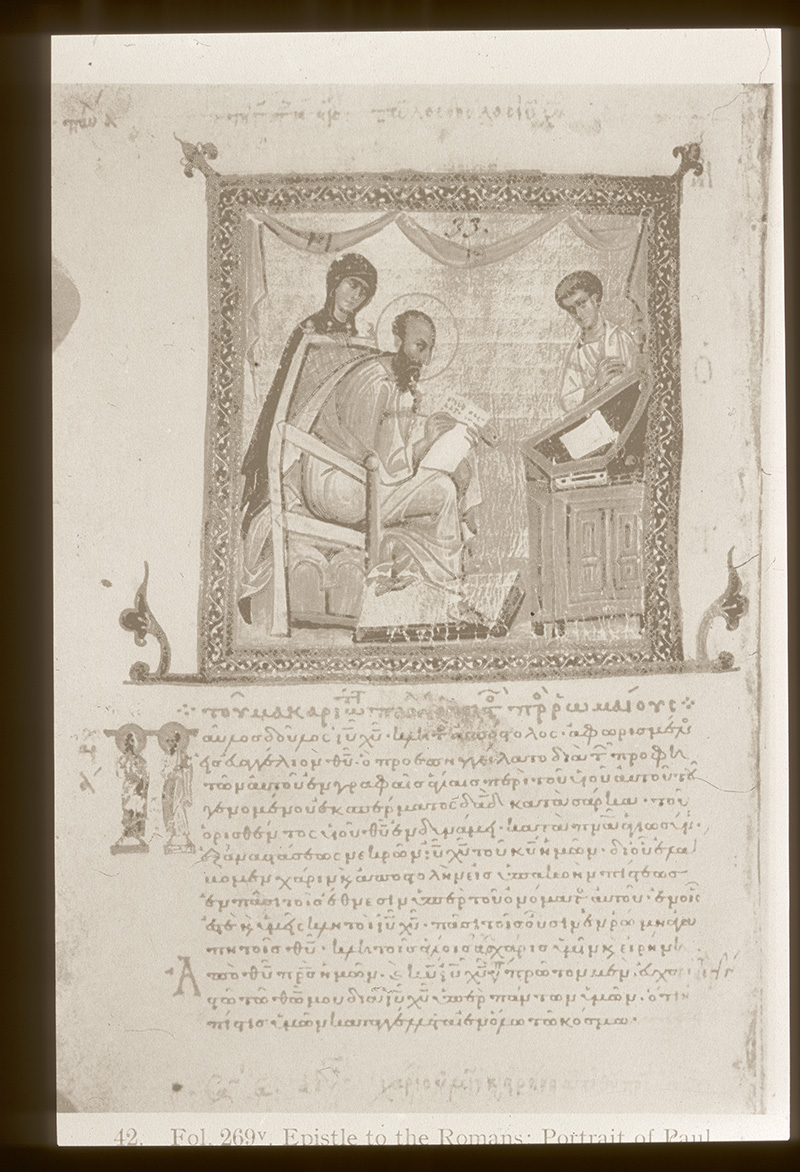 33.
τοῦ μακαρίου πρ ῥωμαίους
Παῦλος δοῦλος ἰῦ χῦ· κλητὸς ἀπόστολος· ἀφωρισμένος
εἰς εὐαγγέλιον θῦ· ὃ προεπηγγείλατο διὰ τῶν προφη
τῶν αὐτοῦ ἐν γραφαῖς ἁγίαις· περὶ τοῦ υἱοῦ αὐτοῦ τοῦ
γενομένου ἐκ σπέρματος δᾱδ κατὰ σάρκα· τοῦ
ὁρισθέντος υἱοῦ θῦ ἐν δυνάμει· κατὰ πνᾱ ἁγιωσύν·
ἐξ ἀναστάσεως νεκρῶν· ἰῦ χῦ τοῦ κῦ ἡμῶν· δι' οὗ ἐλά
βομεν χάριν καὶ ἀποστολὴν εἰς ὑπακοὴν πίστεως
ἐν πᾶσι τοῖς ἔθνεσιν ὑπὲρ τοῦ ὀνόματος αὐτοῦ· ἐν οἷς
ἐστὲ καὶ ὑμεῖς κλητοὶ ἰῦ χῦ· πᾶσι τοῖς οὖσιν ἐν ρώμη ἀγα
πητοῖς θῦ· κλητοῖς ἁγίοις· χάρις ὑμῖν καὶ εἰρήνη
Ἀπὸ θῦ πρς ἡμῶν· καὶ κῦ ἰῦ χῦ· πρῶτον μὲν εὐχαριστῶ
τῶ θῶ μου διὰ ἰῦ χῦ ὑπὲρ πάντων ὑμῶν· ὅτι ἡ
πίστις ὑμῶν καταγγέλλεται ἐν ὅλω τῶ κόσμω·
42. Fol. 269v. Epistle to the Romans: Portrait of Paul